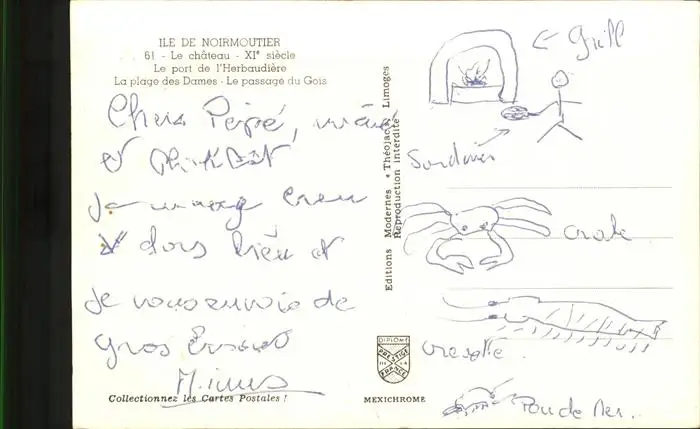 ILE DE NOIRMOUTIER
61 - Le château - XIe siècle
Le port de l'Herbaudière
La plage des Dames - Le passage du Gois
Chers Pépé, mémé
et
je mange bien
et dors bien et
je vous envoie de
gros
Collectionnez les Cartes Postales !
Editions Modernes « Théojac » Limoges
Reproduction interdite
DIPLOME
PRESTIGE
FRANCE
MEXICHROME
← Grill
Sardines
Crabe
crevette.
Pou de Mer.